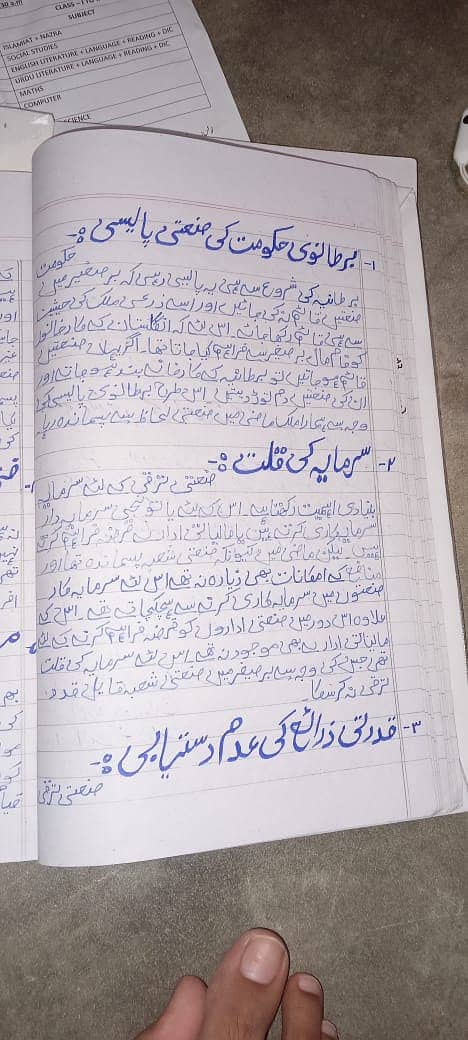 CLASS –
SUBJECT
ISLAMIAT + NAZRA
SOCIAL STUDIES
ENGLISH LITERATURE + LANGUAGE + READING + DIC
URDU LITERATURE + LANGUAGE + READING + DIC
MATHS
COMPUTER
SCIENCE
۱- برطانوی حکومت کی صنعتی پالیسی :-
حکومت
برطانیہ کی شروع سے ہی یہ پالیسی رہی کہ برصغیر میں
صنعتیں قائم نہ کی جائیں اور اسے زرعی ملک کی حیثیت
سے ہی قائم رکھا جائے۔ اس لئے کہ انگلستان کے کارخانوں
کو خام مال برصغیر سے فراہم کیا جاتا تھا۔ اگر یہاں صنعتیں
قائم ہو جاتیں تو برطانیہ کے کارخانے بند ہو جاتے اور
ان کی صنعتیں دم توڑ دیتیں۔ اس طرح برطانوی پالیسی کی
وجہ سے ہمارا ملک ماضی میں صنعتی لحاظ سے پسماندہ رہا۔
۲- سرمایہ کی قلت :-
صنعتی ترقی کے لئے سرمایہ
بنیادی اہمیت رکھتا ہے۔ اس کے لئے یا تو نجی سرمایہ دار
سرمایہ کاری کرتے ہیں یا مالیاتی ادارے قرضہ فراہم کرتے
ہیں۔ لیکن ماضی میں کیونکہ صنعتی شعبہ پسماندہ تھا اور
منافع کے امکانات بھی زیادہ نہ تھے اس لئے سرمایہ کار
صنعتوں میں سرمایہ کاری کرتے سے ہچکچاتے تھے۔ اس کے
علاوہ اس دور میں صنعتی اداروں کو قرضہ فراہم کرنے کے لئے
مالیاتی ادارے بھی موجود نہ تھے۔ اس لئے سرمایہ کی قلت
تھی جس کی وجہ سے برصغیر میں صنعتی شعبہ قابل قدر
ترقی نہ کر سکا۔
۳- قدرتی ذرائع کی عدم دستیابی :-
صنعتی ترقی